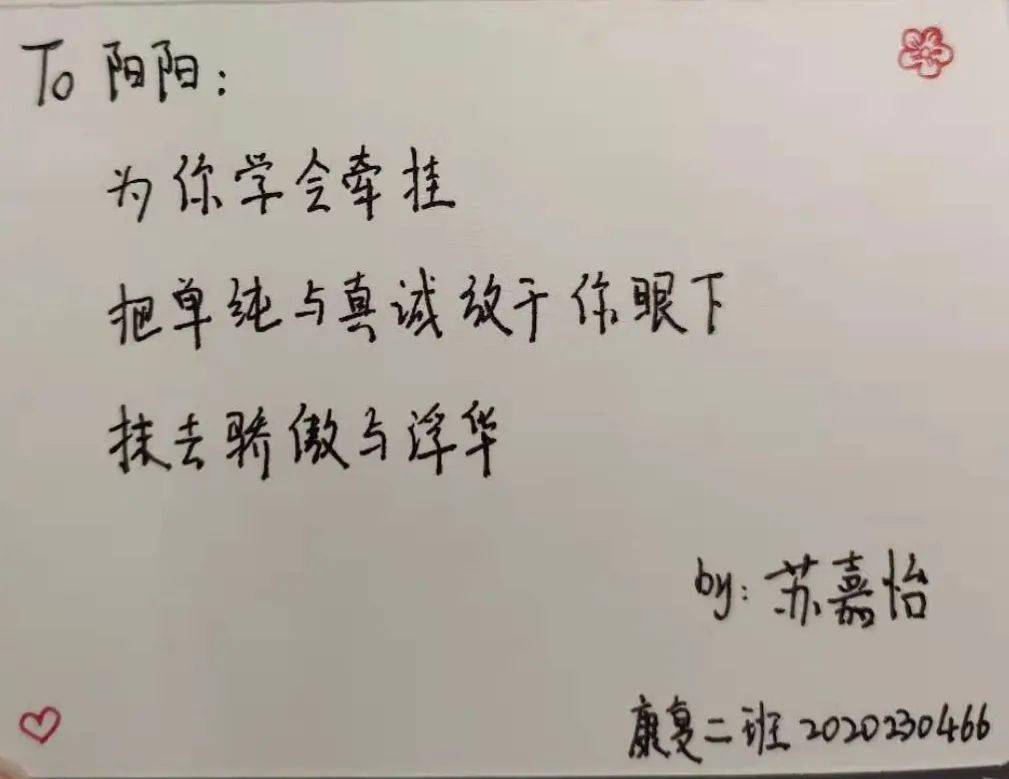 To 阳阳：
为你学会牵挂
把单纯与真诚放于你眼下
抹去骄傲与浮华
by：苏嘉怡
康复二班 2020230466